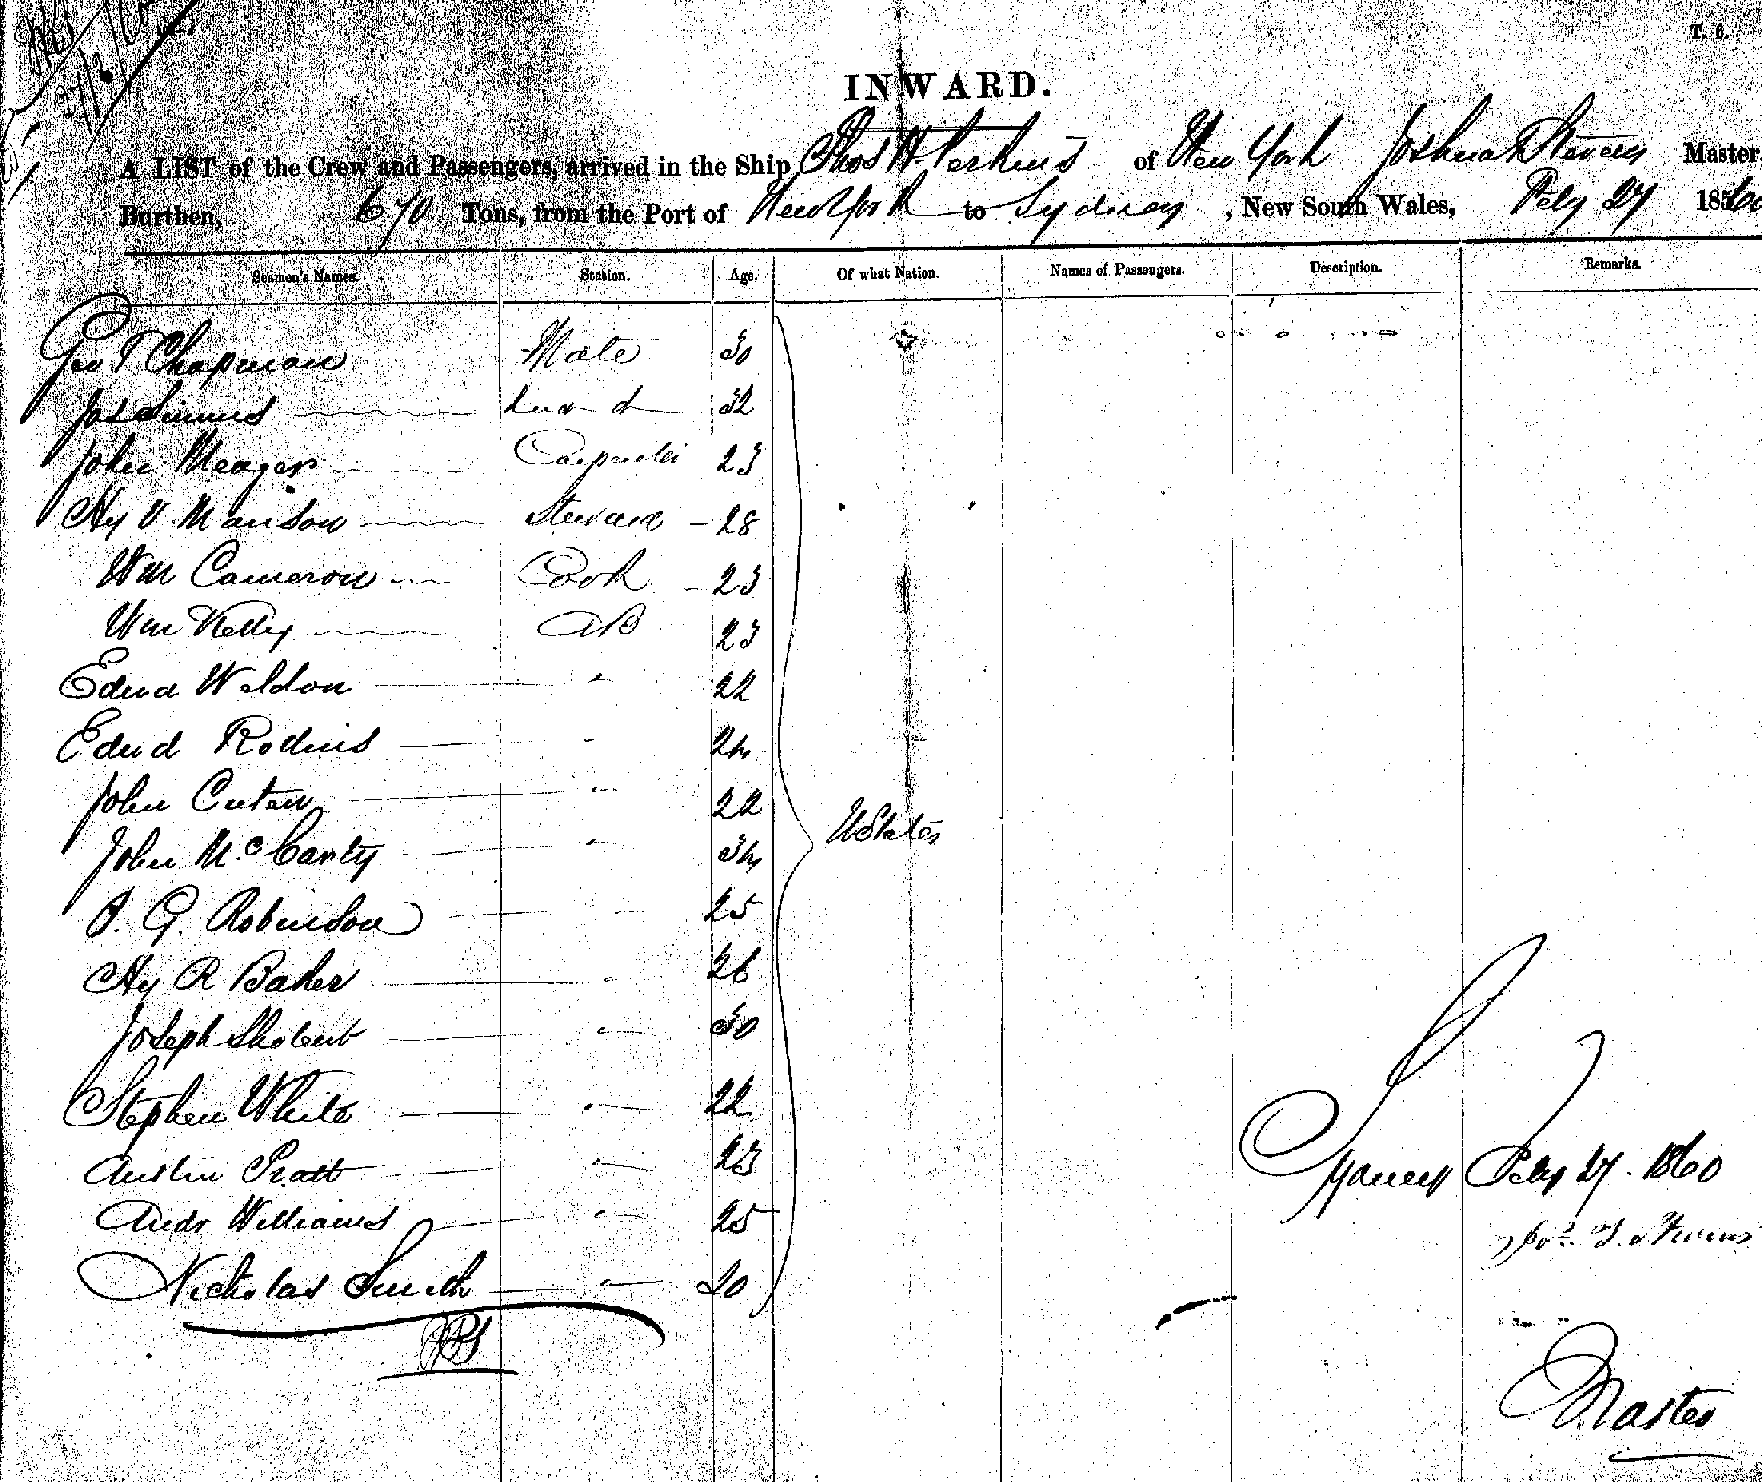 T. 6.
INWARD.
A LIST of the Crew and Passengers, arrived in the Ship Thos H. Perkins of New York Joshua Stevens Master
Burthen, 670 Tons, from the Port of New York to Sydney, New South Wales, Feby 27 1860
Seamen's Names. Station. Age. Of what Nation. Names of Passengers. Description. Remarks.
Geo T Chapman Mate 30
32
John Meager Carpenter 23
Hy V Manson Steward 28
Wm Cameron Cook 23
Wm Kelly AB 23
Edwd Weldon " 22
Edwd Rodins " 24
John " 22
UStates
John McCarty " 34
J. G. Robinson " 25
Hy R Baker " 26
Joseph " 30
Stephen White " 22
Austin Pratt " 23
Sydney Feby 27. 1860
Andr Williams " 25
Jos. T. Stevens
Nicholas Smith " 20
Master